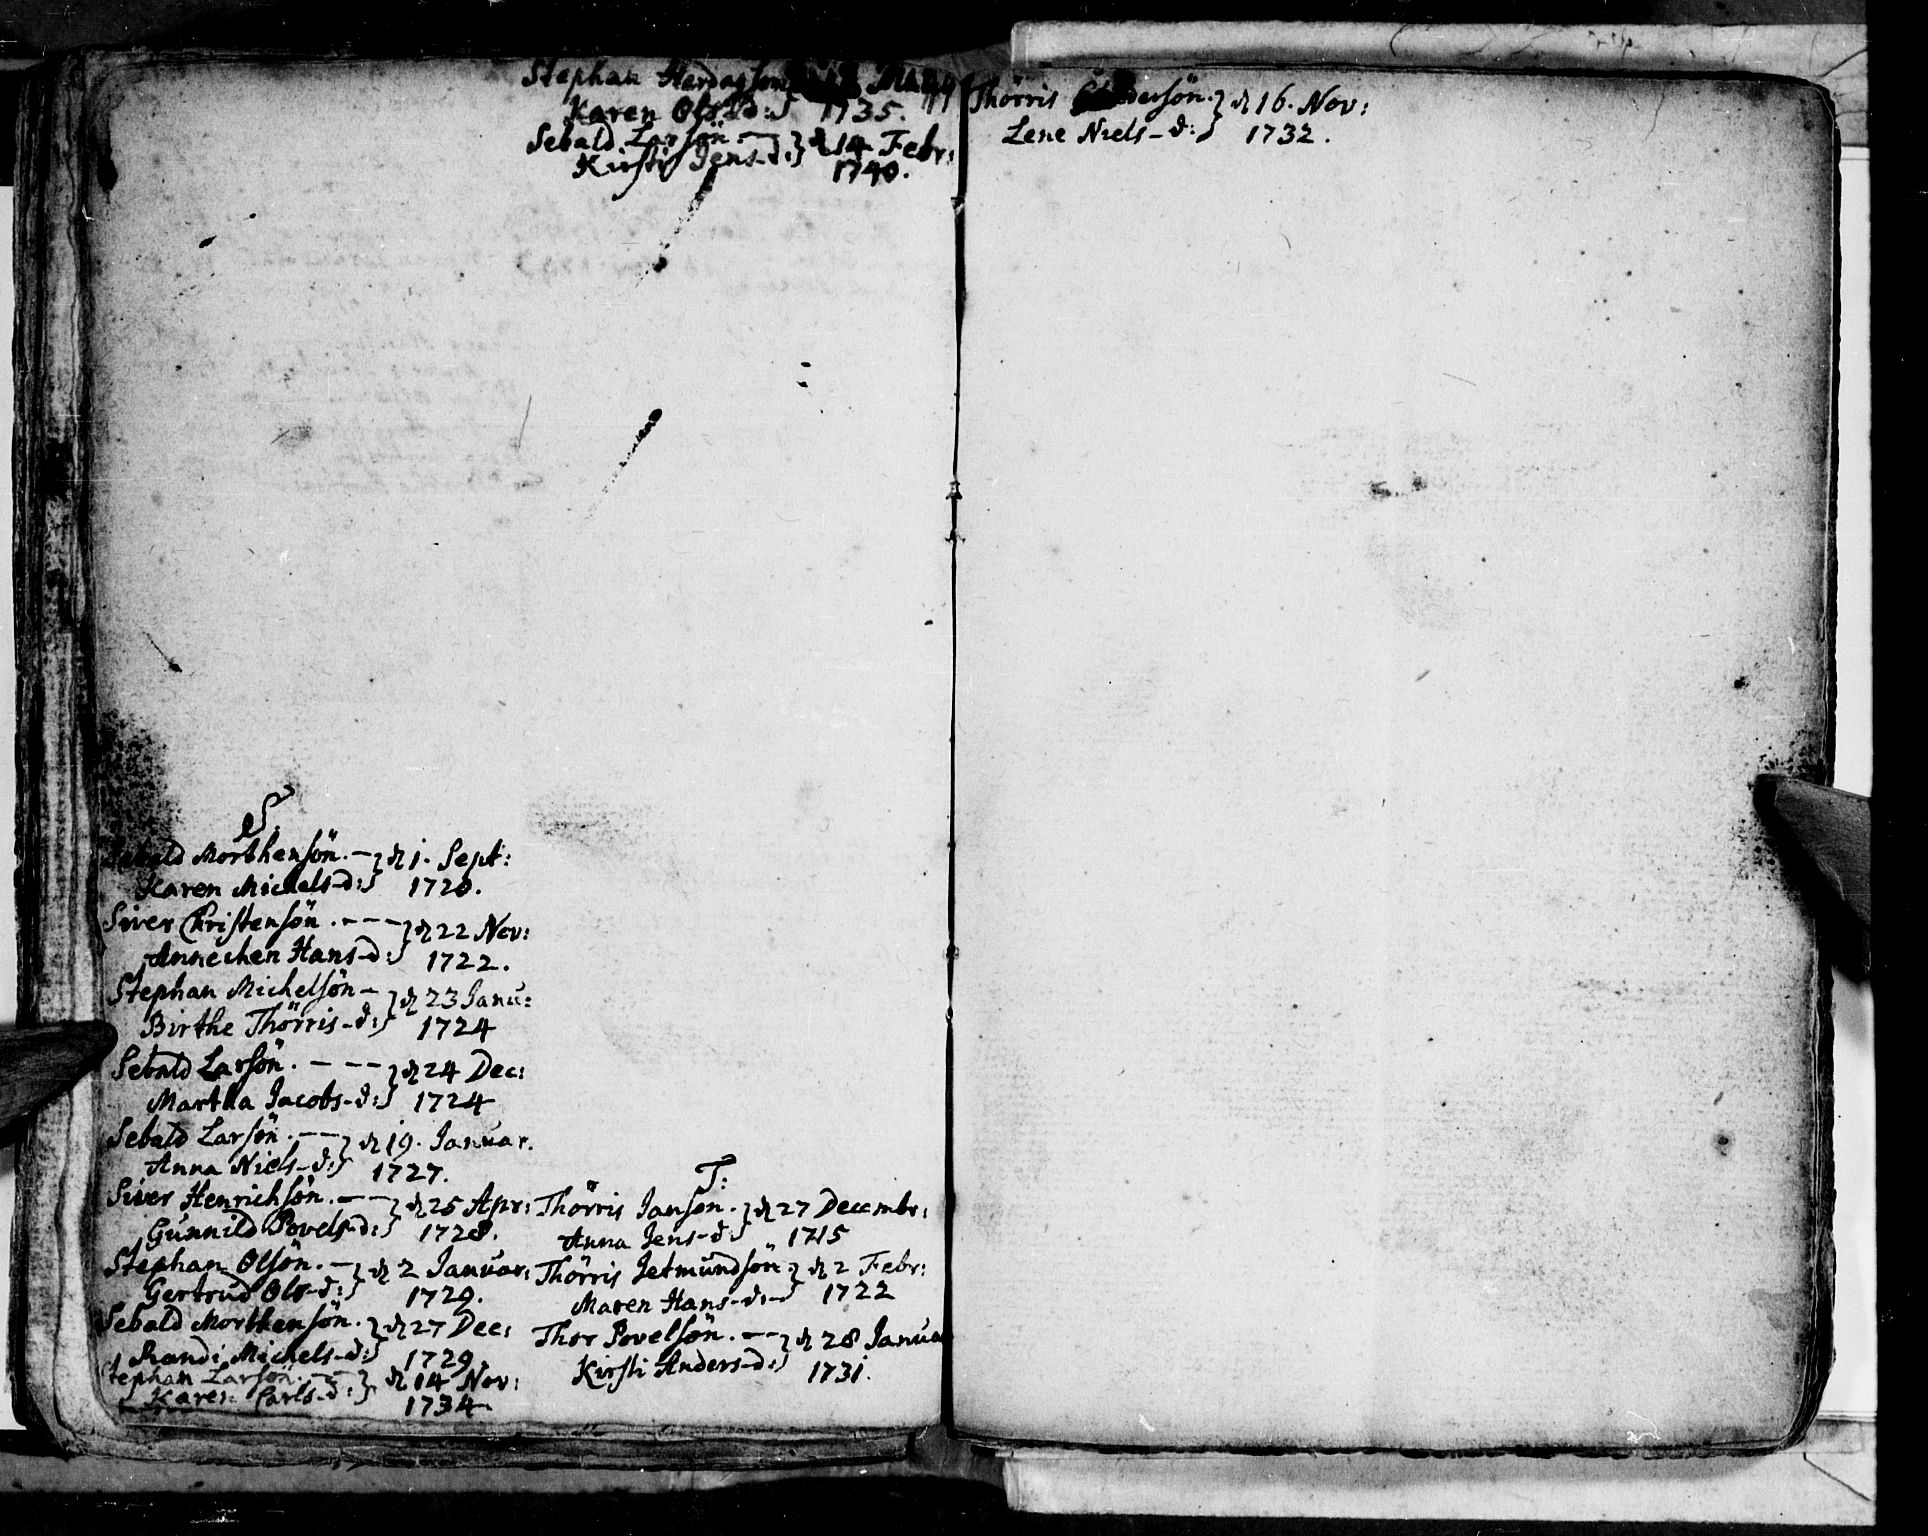 S.
Sebald Morthensön. — } d 1. Sept:
Karen Michels-d: } 1720.
Siver Christensön. - - - } d 22 Nov:
Annechen Hans-d: } 1722.
Stephan Michelsön - } d 23 Janu:
Birthe Thörris-d: } 1724
Sebald Larsön. - - - } d 24 Dec:
Martha Jacobs-d: } 1724
Sebald Larsön. - - } d 19. Januar.
Anna Niels-d: } 1727.
Siver Henrichsön. - - } d 25 Apr:
Gunnild Povels-d: } 1728.
Stephan Olsön. - } d 2 Januar:
Gertrud Ols-d: } 1729.
Sebald Morthensön. } d 27 Dec:
Randi Michels-d: } 1729.
Stephan Larsön. - - } d 14 Nov:
Karen Carls-d: } 1734
Stephan
Karen Ols-d: } 1735.
Sebald Larsön. — } d 14 Febr:
Kirsti Jens-d: } 1740.
T:
Thörris Jansön. } d 27 Decembr:
Anna Jens-d: } 1715
Thörris Jetmundsön } d 2 Febr:
Maren Hans-d: - } 1722
Thor Povelsön. - - } d 28 Janua
Kirsti Anders-d: } 1731.
Thörris } d 16. Nov:
Lene Niels-d: } 1732.